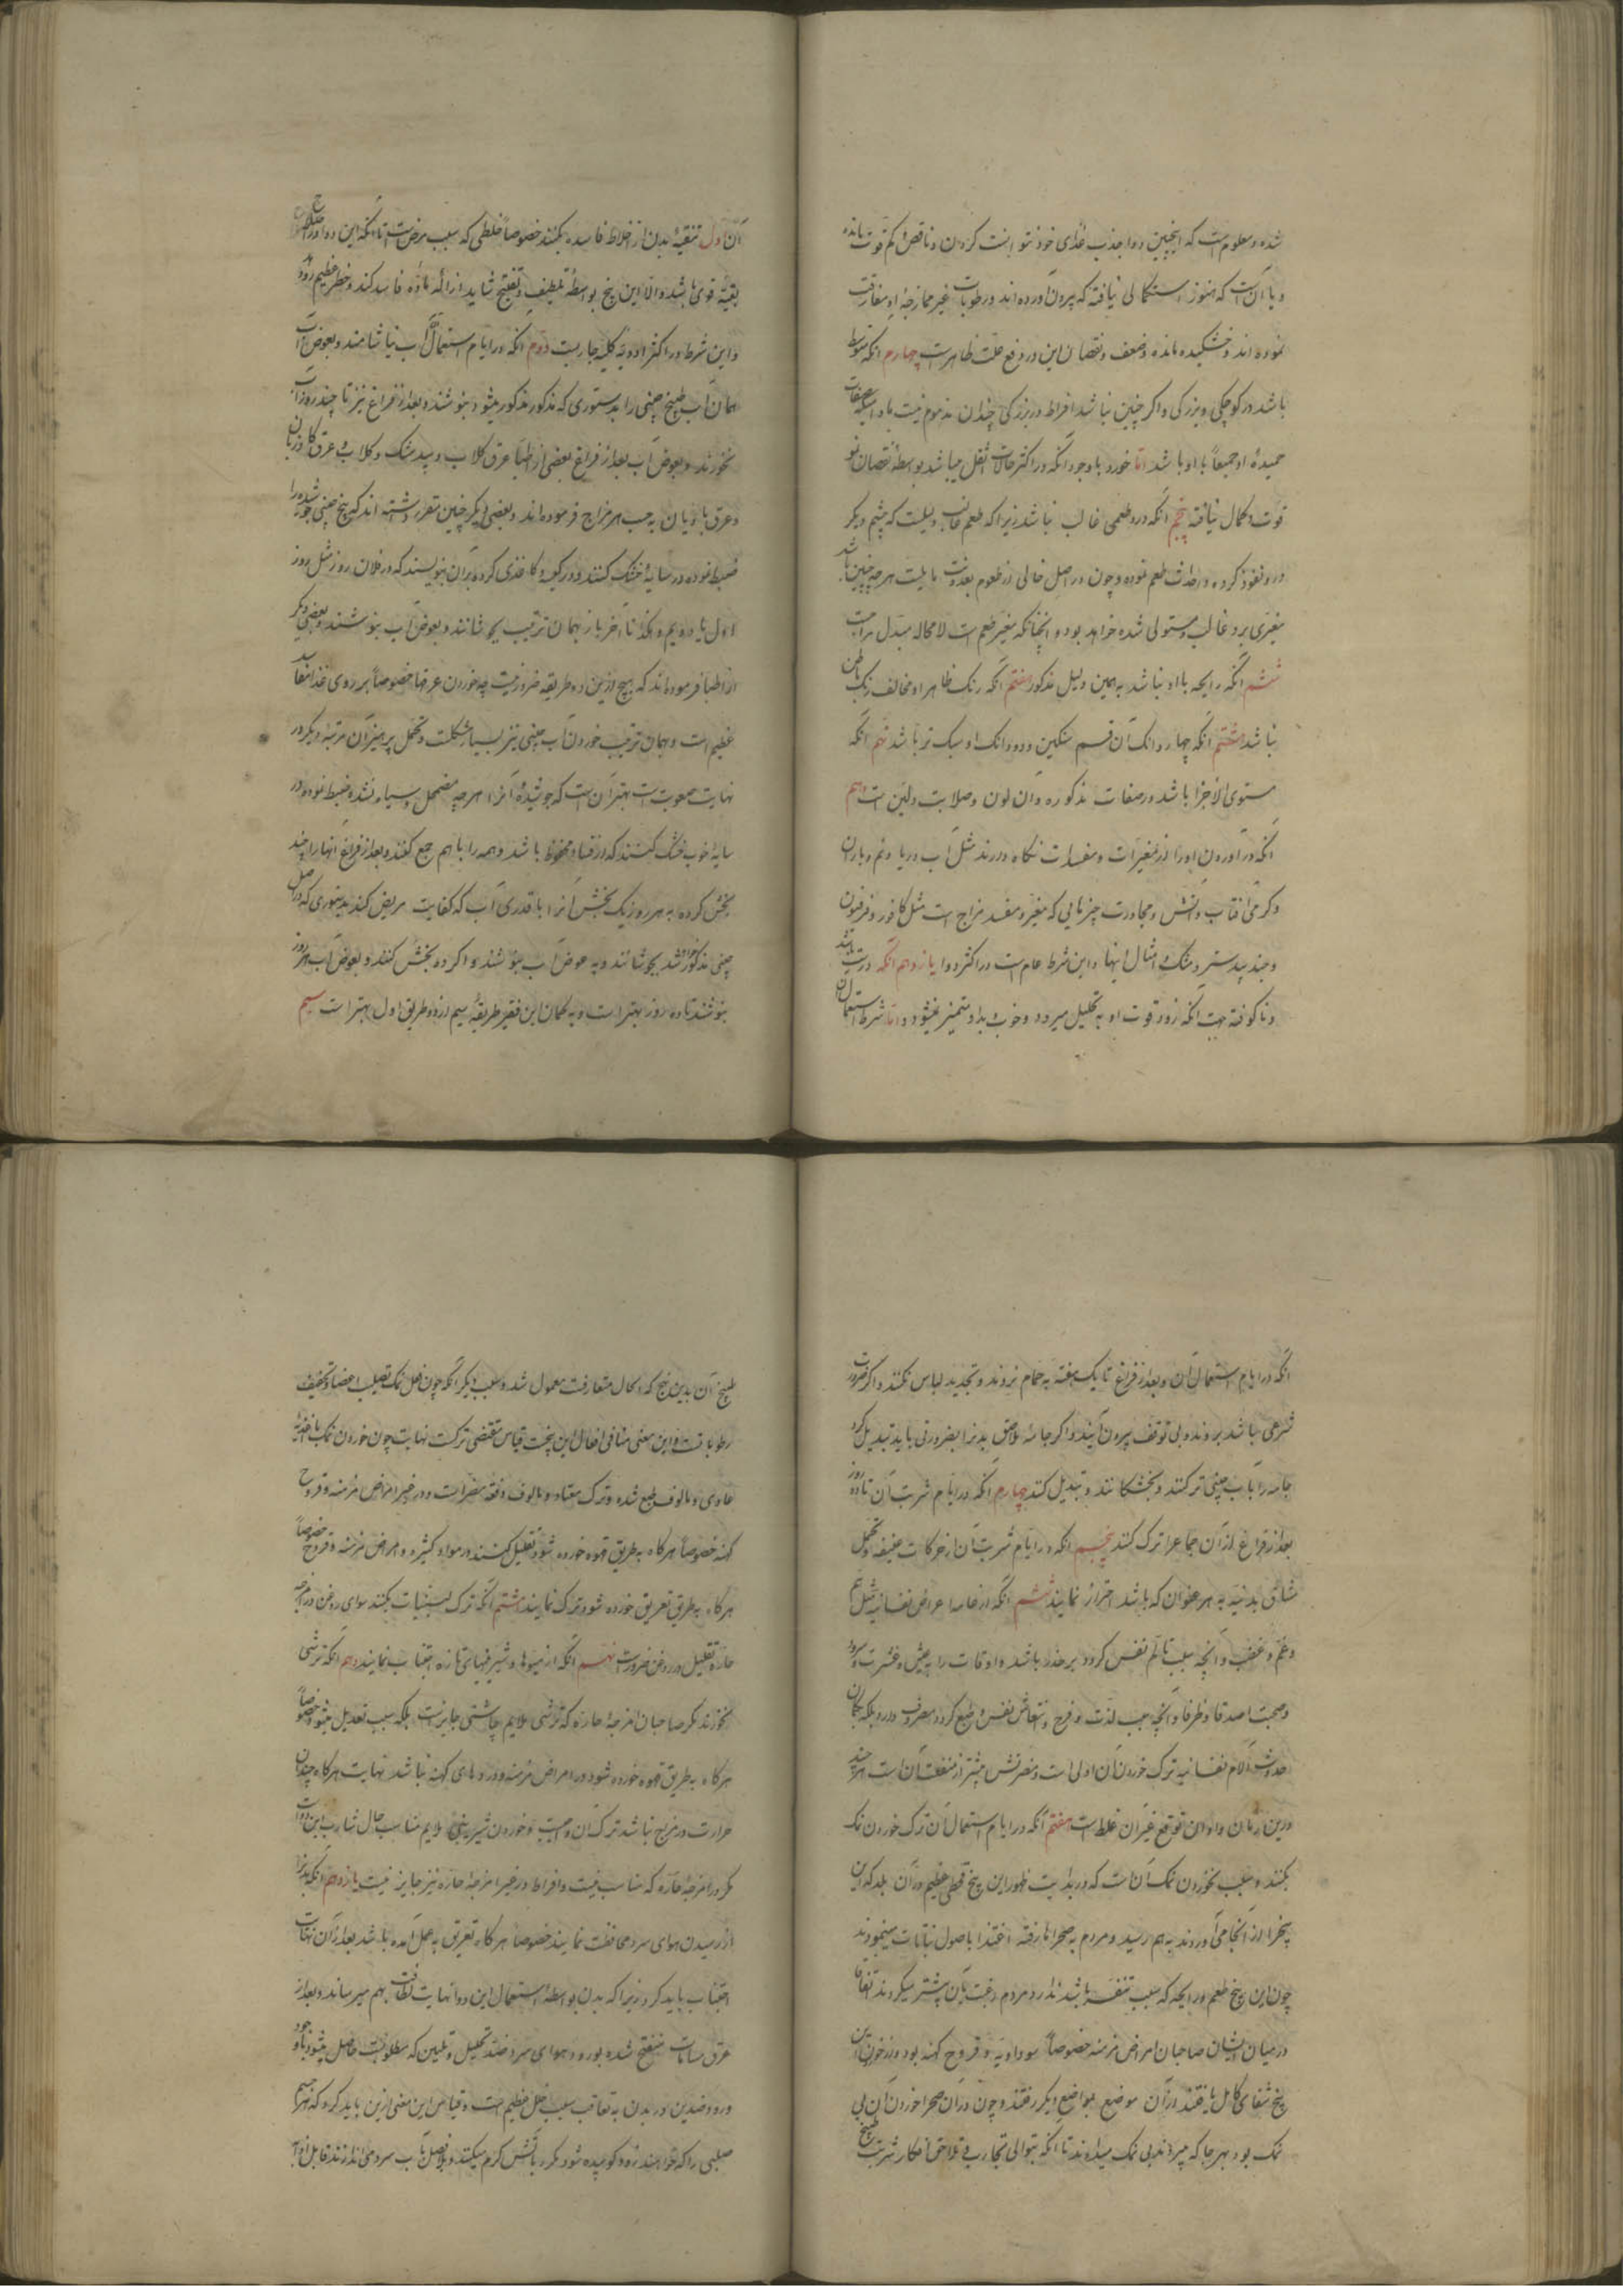 شده و معلومست که اینچنین دوا جذب غذای خود نتوانست کردن و ناقص و کم قوت مانده
و یا آنست که هنوز استکمالی نیافته که بیرون آورده اند و رطوبات غیر ممازجهٔ او مفارقت
نموده اند و خشکیده مانده و ضعف و نقصان این در دفع علت ظاهرست چهارم آنکه متوسط
باشد در کوچکی و بزرگی و اگر چنین نباشد افراط در بزرگی چندان مذموم نیست با وجود آنکه صفات
حمیدهٔ او جمیعاً با او باشد اما خورد با وجود آنکه در اکثر حالات اثقل میباشد بواسطهٔ نقصان نمو
قوت و کمال نیافته پنجم آنکه درو طعمی غالب نباشد زیرا که طعم غالب دلیلست که چشم دیگر
درو نفوذ کرده و احداث طعم نموده و چون در اصل خالی از طعوم بعذوبت مایلست هرچه چنین باشد
مغیری برو غالب و مستولی شده خواهد بود و آنچنانکه مغیر طعم است لامحاله مبدل مزاجست
ششم آنکه رایحه با او نباشد به همین دلیل مذکور هفتم آنکه رنک ظاهر او مخالف رنک باطن
نباشد هشتم آنکه چهار دانک آن قسم سنکین و دو دانک او سبک تر باشد نهم آنکه
مستوی الاجزا باشد در صفات مذکوره و آن لون و صلابت و لین است دهم
آنکه در آوردن او را از مغیرات و مفسدات نکاه دارند مثل آب دریا و نم و باران
و گرمی آفتاب و آتش و مجاورت چیزهایی که مغیر و مفسد مزاج است مثل کافور و فرفیون
و جند بیدستر و مشک و امثال اینها و این شرط عام است در اکثر دوا یازدهم آنکه درست باشد
و ناکوفته جهت آنکه زود قوت او به تحلیل میرود و خوب و بد او متمیز نمیشود و اما شرط استعمال
آن اول تنقیهٔ بدن از اخلاط فاسده بکنند خصوصاً خلطی که سبب مرض است تا آنکه این دوا در اصلاح
بقیه قوی باشد و الا این بیخ بواسطهٔ تلطیف و تفتیح شاید ازالهٔ مادهٔ فاسد کند و خطر عظیم رود
و این شرط در اکثر ادویه کلیه جاریست دوم آنکه در ایام استعمال آن آب نیاشامند و بعوض آب
همان آب طبیخ چینی را بدستوری که مذکور میشود بنوشند و بعد از فراغ نیز تا چند روز آب
نخورند و بعوض آب بعد از فراغ بعضی از اطبا عرق کلاب و بیدمشک و کلاب و عرق کاوزبان
و عرق بادیان به حسب هر مزاج فرموده اند و بعضی دیگر چنین مقرر داشته اند که بیخ چینی جوشیده را
ضبط نموده در سایه خشک کنند و در یک کاغذی کرده بر آن بنویسند که در فلان روز مثل روز
اول یا دویم و هکذا تا آخر باز بهمان ترتیب بجوشانند و بعوض آب بنوشند و بعضی دیگر
از اطبا فرموده اند که هیچ ازین دو طریقه ضرور نیست چه خوردن عرقها خصوصاً بر روی غذا مفاسد
عظیم است و بهمان ترتیب خوردن آب چینی نیز بسیار مشکلست و تحمل پرهیز آن مرتبه دیگر در
نهایت صعوبت است بهتر آن است که جوشیدهٔ آنرا هرچه مضمحل و سیاه نشده ضبط نموده در
سایه خوب خشک کنند که از فساد محفوظ باشد و همه را با هم جمع کنند و بعد از فراغ آنها را چند
بخش کرده به هر روز یک بخش آنرا با قدری آب که کفایت مریض کند بدستوری که در اصل
چینی مذکور شد بجوشانند و به عوض آب بنوشند و اگر ده بخش کنند و بعوض آب هر روز
بنوشند تا ده روز بهتر است و به کمان این فقیر طریقهٔ سیم از دو طریق اول بهتر است سیم
آنکه در ایام استعمال آن و بعد از فراغ تا یک هفته به حمام نروند و تجدید لباس نکنند و اگر ضرورت
شرعی باشد بروند و بی توقف بیرون آیند و اگر جامهٔ ملاصق بدن را بضرورتی باید تبدیل کرد
جامه را بآب چینی تر کنند و بخشکانند و تبدیل کنند چهارم آنکه در ایام شرب آن تا ده روز
بعد از فراغ از آن جماع را ترک کنند پنجم آنکه در ایام شرب آن از حرکات عنیفه و تحمل
مشاق بدنیه به هر عنوان که باشد احتراز نمایند ششم آنکه از خاصه اعراض نفسانیه مثل هم
و غم و غضب و آنچه سبب تألم نفس کردد بر حذر باشد و اوقات را به عیش و عشرت و سرور
و صحبت اصدقا و ظرفا و آنچه سبب لذت و فرح و انتعاش نفس و طبع کردد مصروف دارد بلکه بکمان
حدوث آلام نفسانیه ترک خوردن آن اولی است و مضرتش بیشتر از منفعت آن است هرچند
درین زمان و اوان توقع غیر آن غلط است هفتم آنکه در ایام استعمال آن ترک خوردن نمک
بکنند و سبب نخوردن نمک آن است که در بدایت ظهور این بیخ قحطی عظیم در آن بلد که این
بیخ را از آنجا می آوردند به هم رسید و مردم به صحراها رفته اغتذا باصول نباتات مینمودند
چون این بیخ طعم و رایحه که سبب تنفر باشد ندارد مردم رغبت بآن بیشتر میکردند اتفاقا
در میان ایشان صاحبان امراض مزمنه خصوصاً سوداویه و قروح کهنه بود و از خوردن این
بیخ شفای کامل یافتند و از آن موضع بمواضع دیگر رفتند و چون در آن صحرا خوردن آن بی
نمک بود بهر جا که میبردند بی نمک میدادند تا آنکه بتوالی تجارب و تلاحق افکار شرب طبیخ
طبیخ آن بدین نهج که الحال متعارفست معمول شد و سبب دیگر آنکه چون فعل نمک تصلیب اعضا و تجفیف
رطوباتست و این معنی منافی افعال این بیخست قیاس مقتضی ترکست نهایت چون خوردن نمک با اغذیه
عادی و مالوف طبع شده و ترک معتاد و مالوف دفعة مضراست و در غیر امراض مزمنه و قروح
کهنه خصوصاً هرکاه به طریق قهوه خورده شود تقلیل کنند و در مواد کثیره و امراض مزمنه و قروح خصوصاً
هرکاه به طریق تعریق خورده شود ترک نمایند هشتم آنکه ترک لبنیات بکنند سوای روغن در امزجه
حاره تقلیل در روغن ضرورست نهم آنکه از میوها و شیرینیهای تازه اجتناب نمایند دهم آنکه ترشی
نخورند مکر صاحبان امزجهٔ حاره که ترشی ملایم چاشنی جایزست بلکه سبب تعدیل میشود خصوصاً
هرکاه به طریق قهوه خورده شود و در امراض مزمنه و دردهای کهنه نباشد نهایت هرکاه چندان
حرارت در مزاج نباشد ترک آن واجبست و خوردن شیرینی ملایم مناسب حال شارب این دواست
مکر در امزجهٔ حاره که مناسب نیست و افراط در غیر امزجهٔ حاره نیز جایز نیست یازدهم آنکه بدن را
از رسیدن هوای سرد محافظت نمایند خصوصاً هرکاه تعریق به عمل آمده باشد بعد از آن نهایت
اجتناب باید کرد زیرا که بدن بواسطهٔ استعمال این دوا نهایت لطافت بهم میرساند و بعد از
عرق مسامات منفتح شده بورود هوای سرد ضد تحلیل و تلیین که مطلوبست حاصل میشود با وجود
ورود ضدین در بدن به تعاقب سبب خلل عظیم است و قیاس این معنی ازین باید کرد که هر جسم
صلبی را که خواهند زود کوبیده شود مکرر بآتش کرم میکنند و بلافصل بآب سرد می اندازند قابل